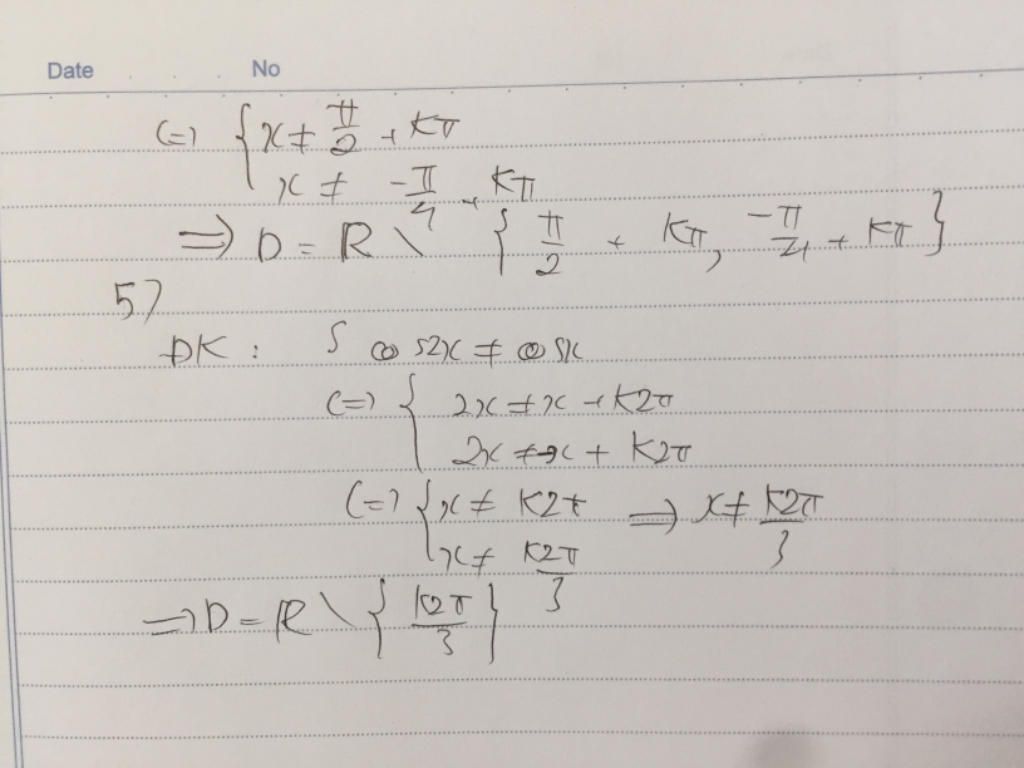 Date No
(=) { x ≠ π/2 + kπ
x ≠ -π/4 + kπ
=> D = R \ { π/2 + kπ, -π/4 + kπ }
5)
ĐK: { cos2x ≠ cosx
(=) { 2x ≠ x + k2π
2x ≠ -x + k2π
(=) { x ≠ k2π => x ≠ k2π/3
x ≠ k2π/3
=> D = R \ { k2π/3 }